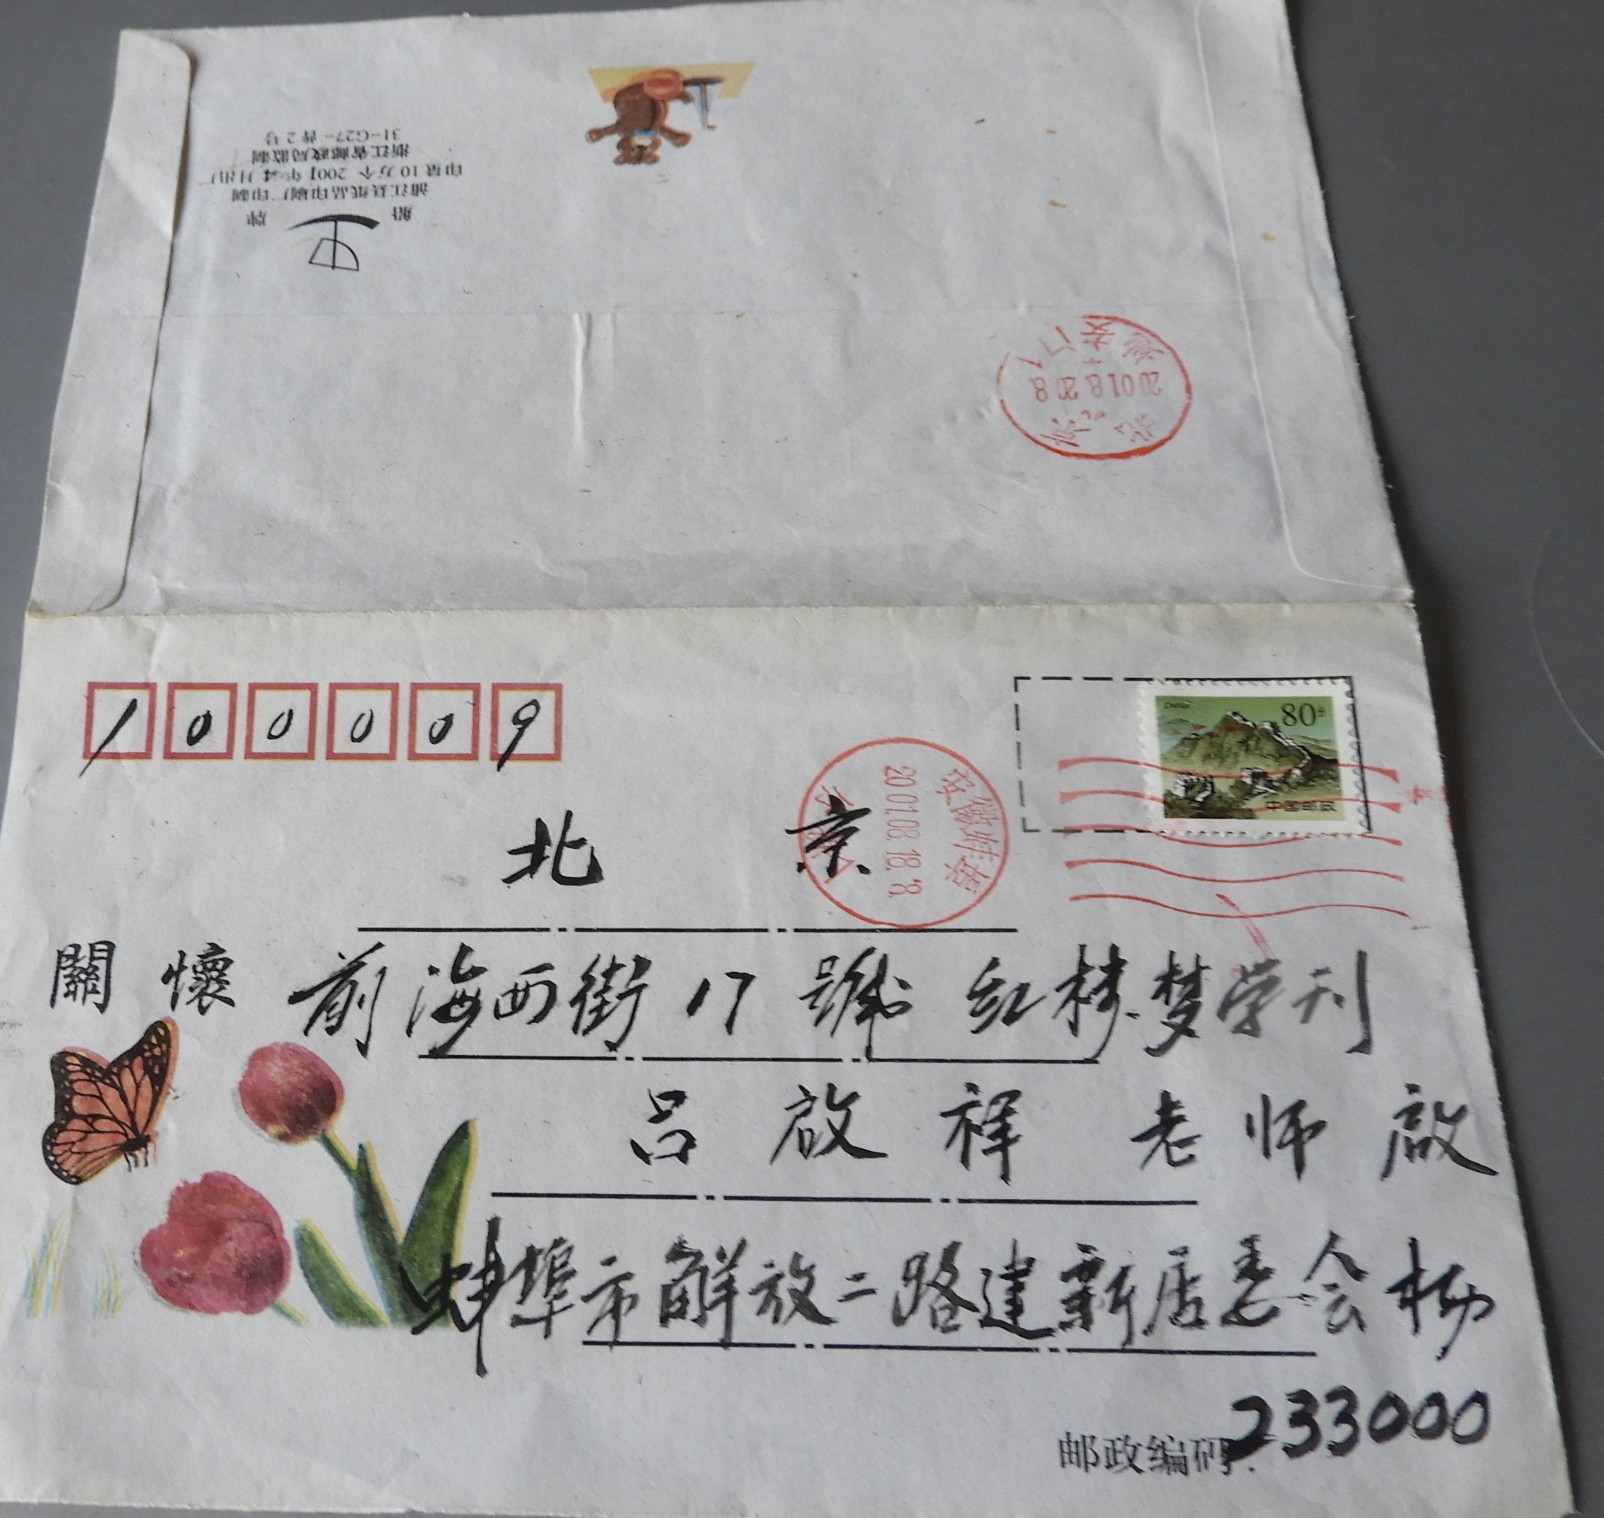 船 牌
浦江县纸品印刷厂印制
印量10万个 2001年4月出厂
浙江省邮政局监制
31-G27-普2号
北京
2001.8.20.8
建安门
100009
80分
中国邮政
安徽蚌埠
2001.08.18.18.
北 京
關懷
前海西街17號 红楼梦学刊
吕啟祥 老师 啟
蚌埠市解放二路建新居委会杨
邮政编码: 233000